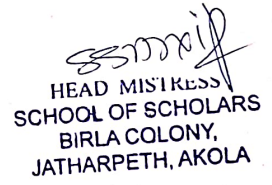 HEAD MISTRESS
SCHOOL OF SCHOLARS
BIRLA COLONY,
JATHARPETH, AKOLA